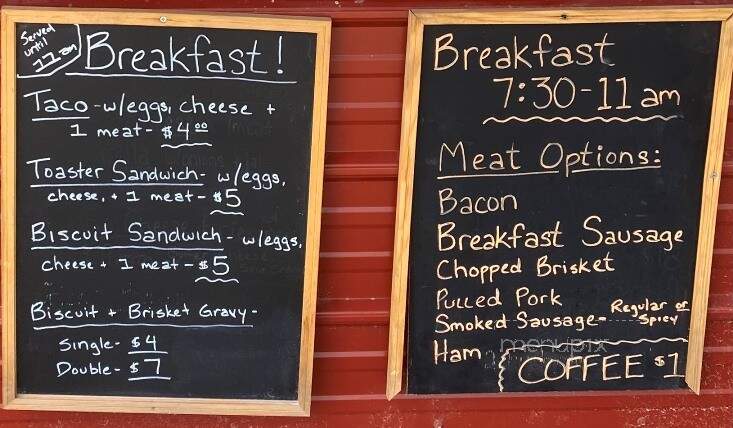 Served
until
11 am
Breakfast!
Taco - w/eggs, cheese +
1 meat - $4.00
Toaster Sandwich - w/eggs,
cheese, + 1 meat - $5
Biscuit Sandwich - w/eggs,
cheese + 1 meat - $5
Biscuit + Brisket Gravy -
Single - $4
Double - $7
Breakfast
7:30-11 am
Meat Options:
Bacon
Breakfast Sausage
Chopped Brisket
Pulled Pork
Smoked Sausage - Regular or
Spicy
Ham
menupix
COFFEE $1